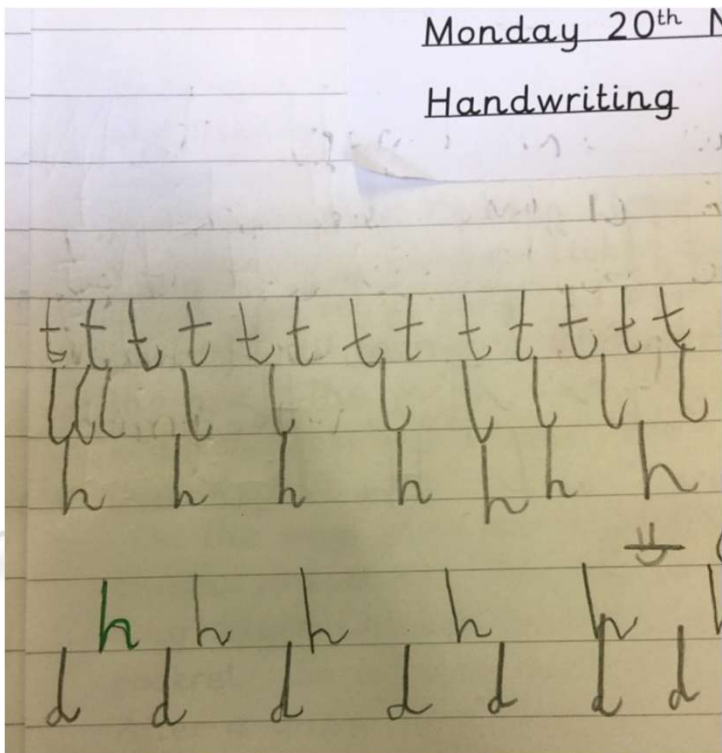 Monday 20th N
Handwriting
t t t t t t t t t t t t t
l l l l l l l l l l
h h h h h h h
h h h h h h
d d d d d d d